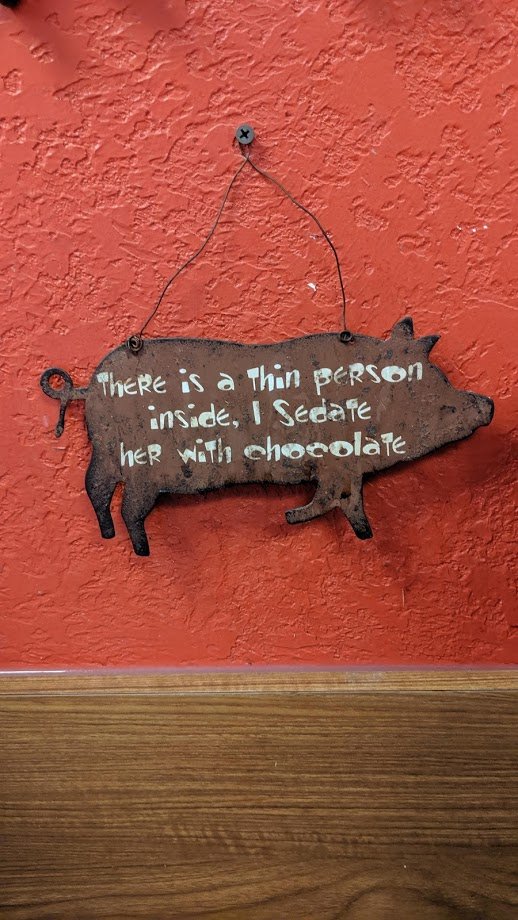 There is a Thin person
inside, I Sedate
her with chocolate